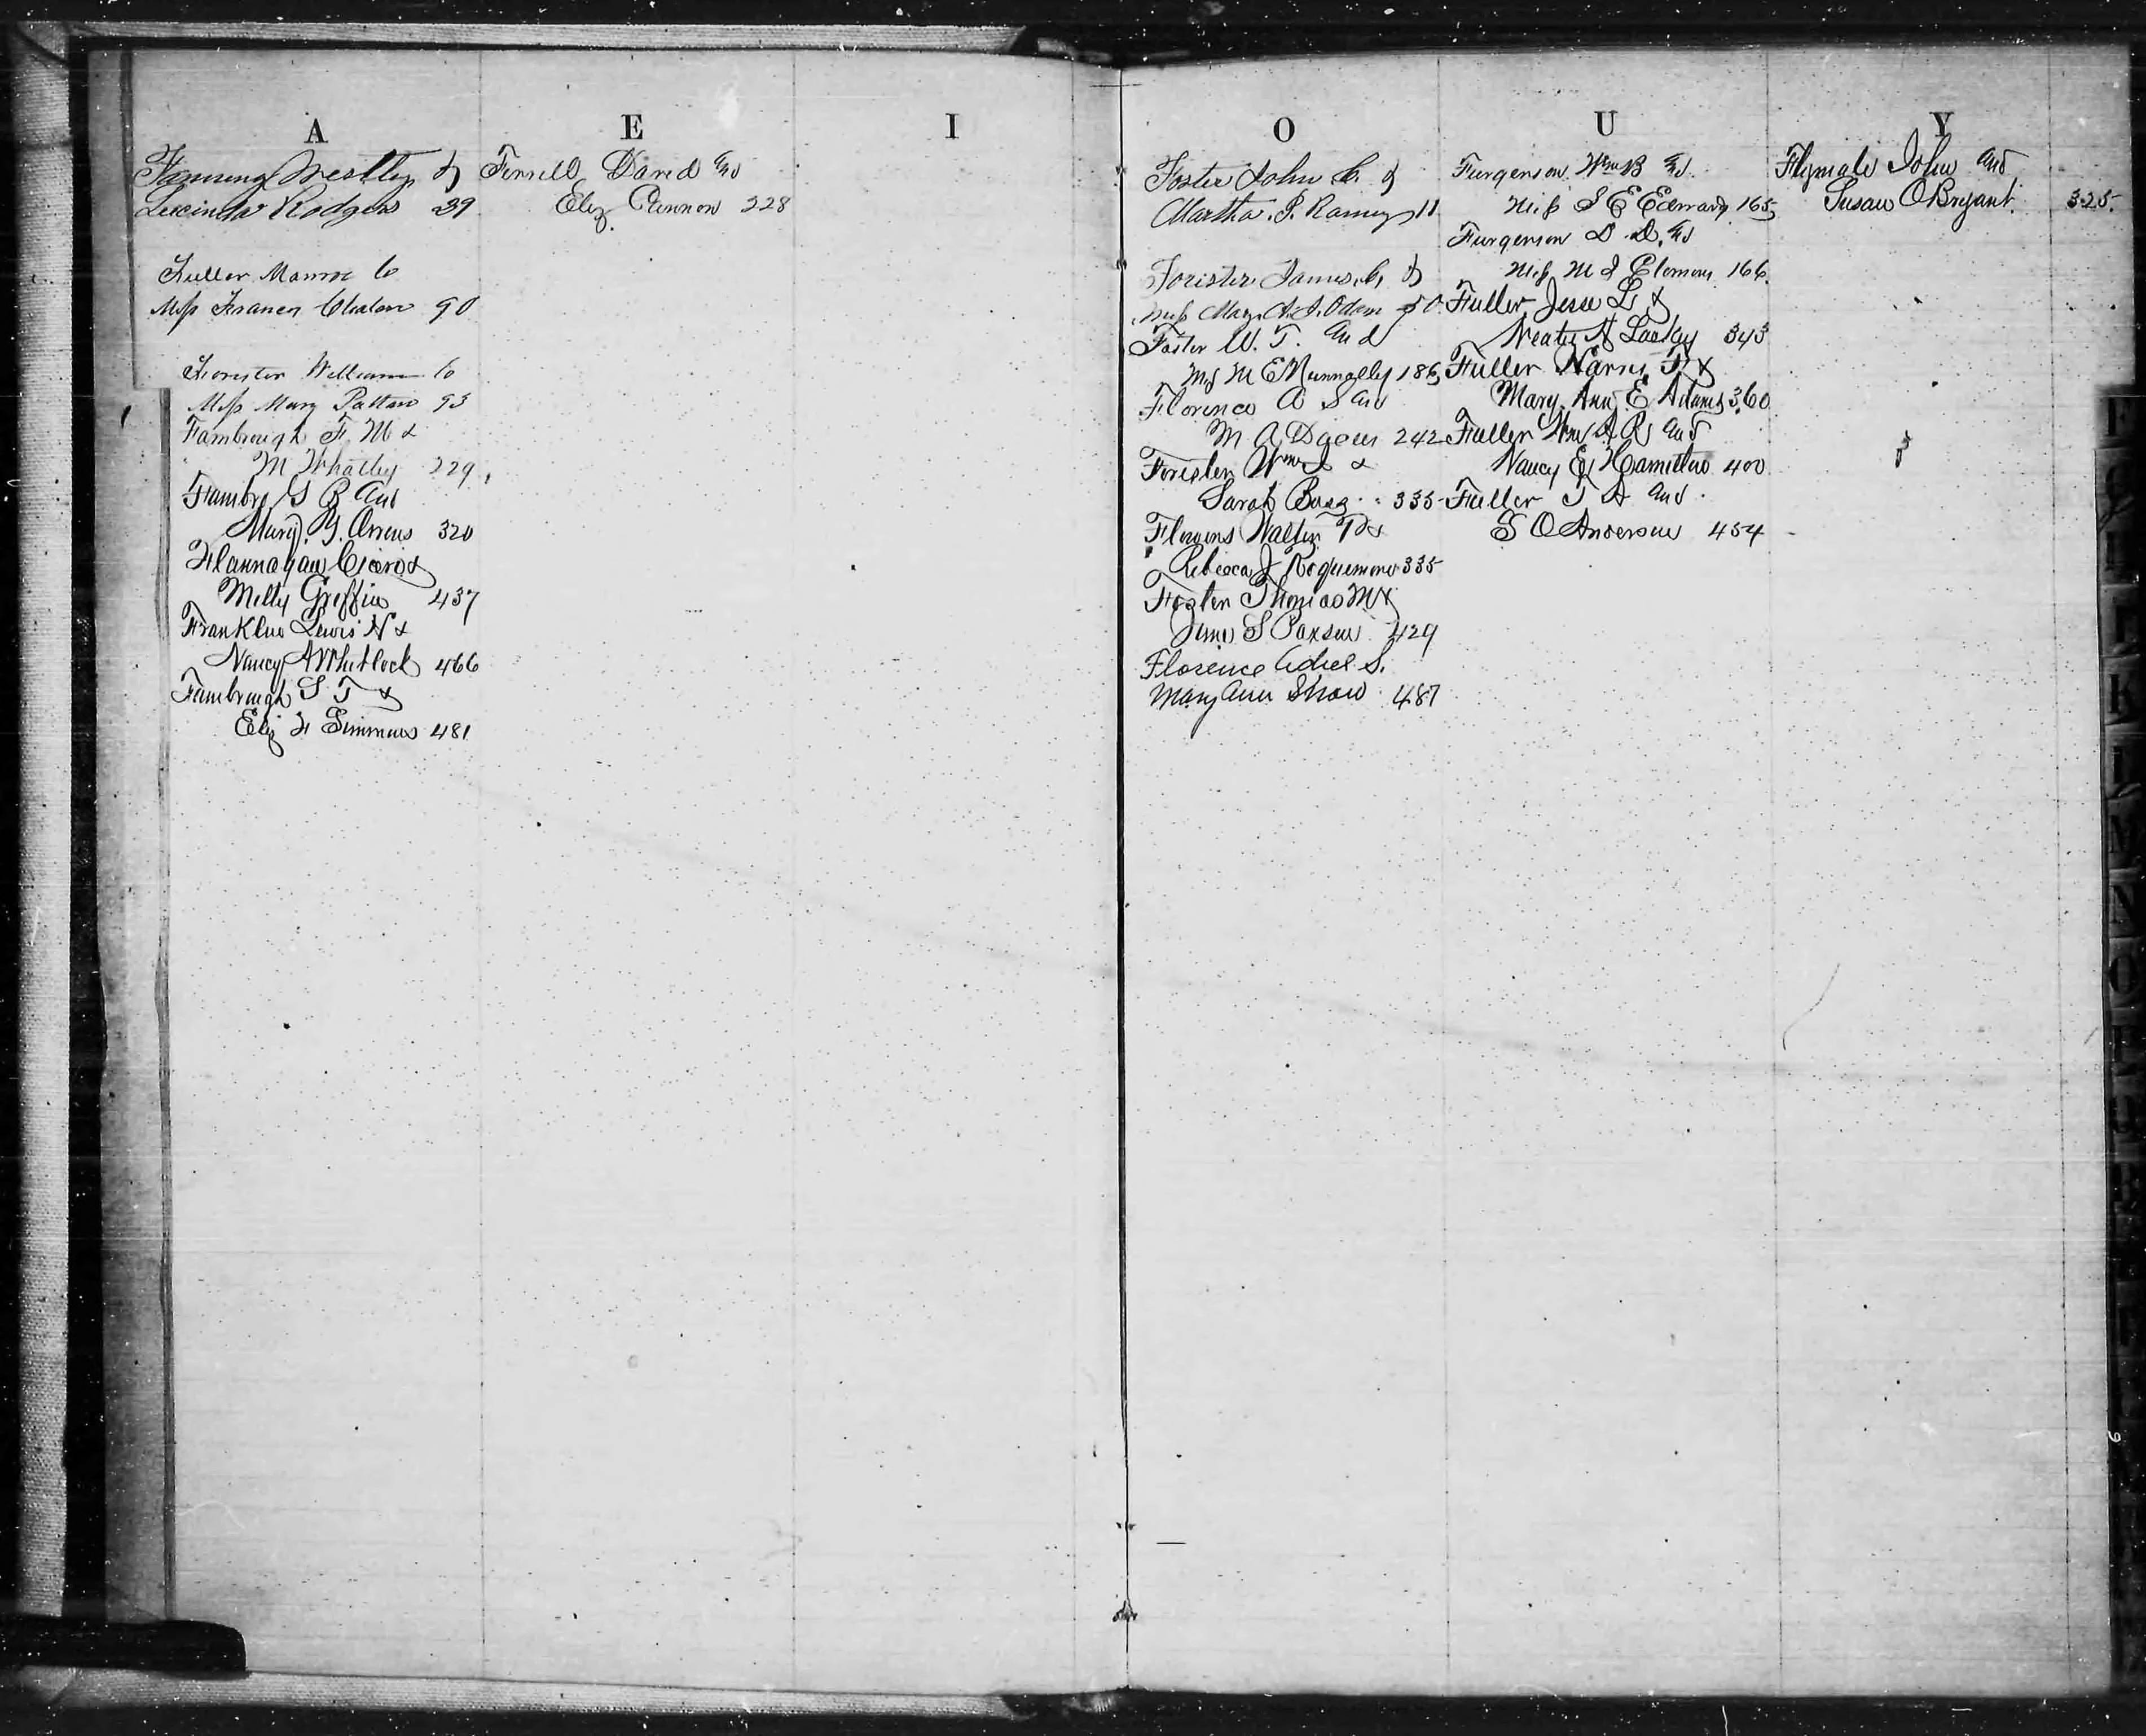 A
Fanning Westley &
Lucinda Rodgers 39
Fuller Monroe to
Miss Frances Chaton 90
Forister William to
Miss Mary Patton 93
Fambrough F. M &
M Whatley 229
Fambro G B and
Mary G. Orrens 320
Flannagan Cicero &
Milly Griffin 437
Franklin Lewis N &
Nancy A Whitlock 466
Fambrough S T &
Eliz F Simmons 481
E
Ferrell David and
Eliz Cannon 228
I
O
Foster John C. &
Martha. J. Ramey 11
Forister James C, &
Miss Mary A. J. Odam 50
Foster W. T. and
Ms M E Nunnally 186
Florence A S and
M A 242
Forister Wm &
Sarah 335
Flowers Walter T &
Rebecca J Roquemore 335
Foster Thomas M &
Jane S Paxson 429
Florence Adiel S.
Mary Ann Shaw 487
U
Furgerson Wm B and
Miss S E Edwards 165
Furgerson D. D. and
Miss M J Clemons 166
Fuller, Jesse L, &
N Lackey 343
Fuller Harris P &
Mary Ann E Adams 360
Fuller Wm A R and
Nancy E Hamilton 400
Fuller J A and
S O Anderson 454
Y
Flymale John and
Susan O Bryant 325
F
K
L
M
N
O